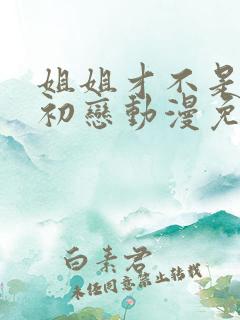 姐姐才不是
初戀動漫免
白素君
未经同意禁止转载